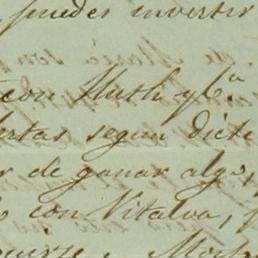 puedes invertir
con Huth y Cª
ertas segun dicte
r de ganar algo,
con Vitalva,